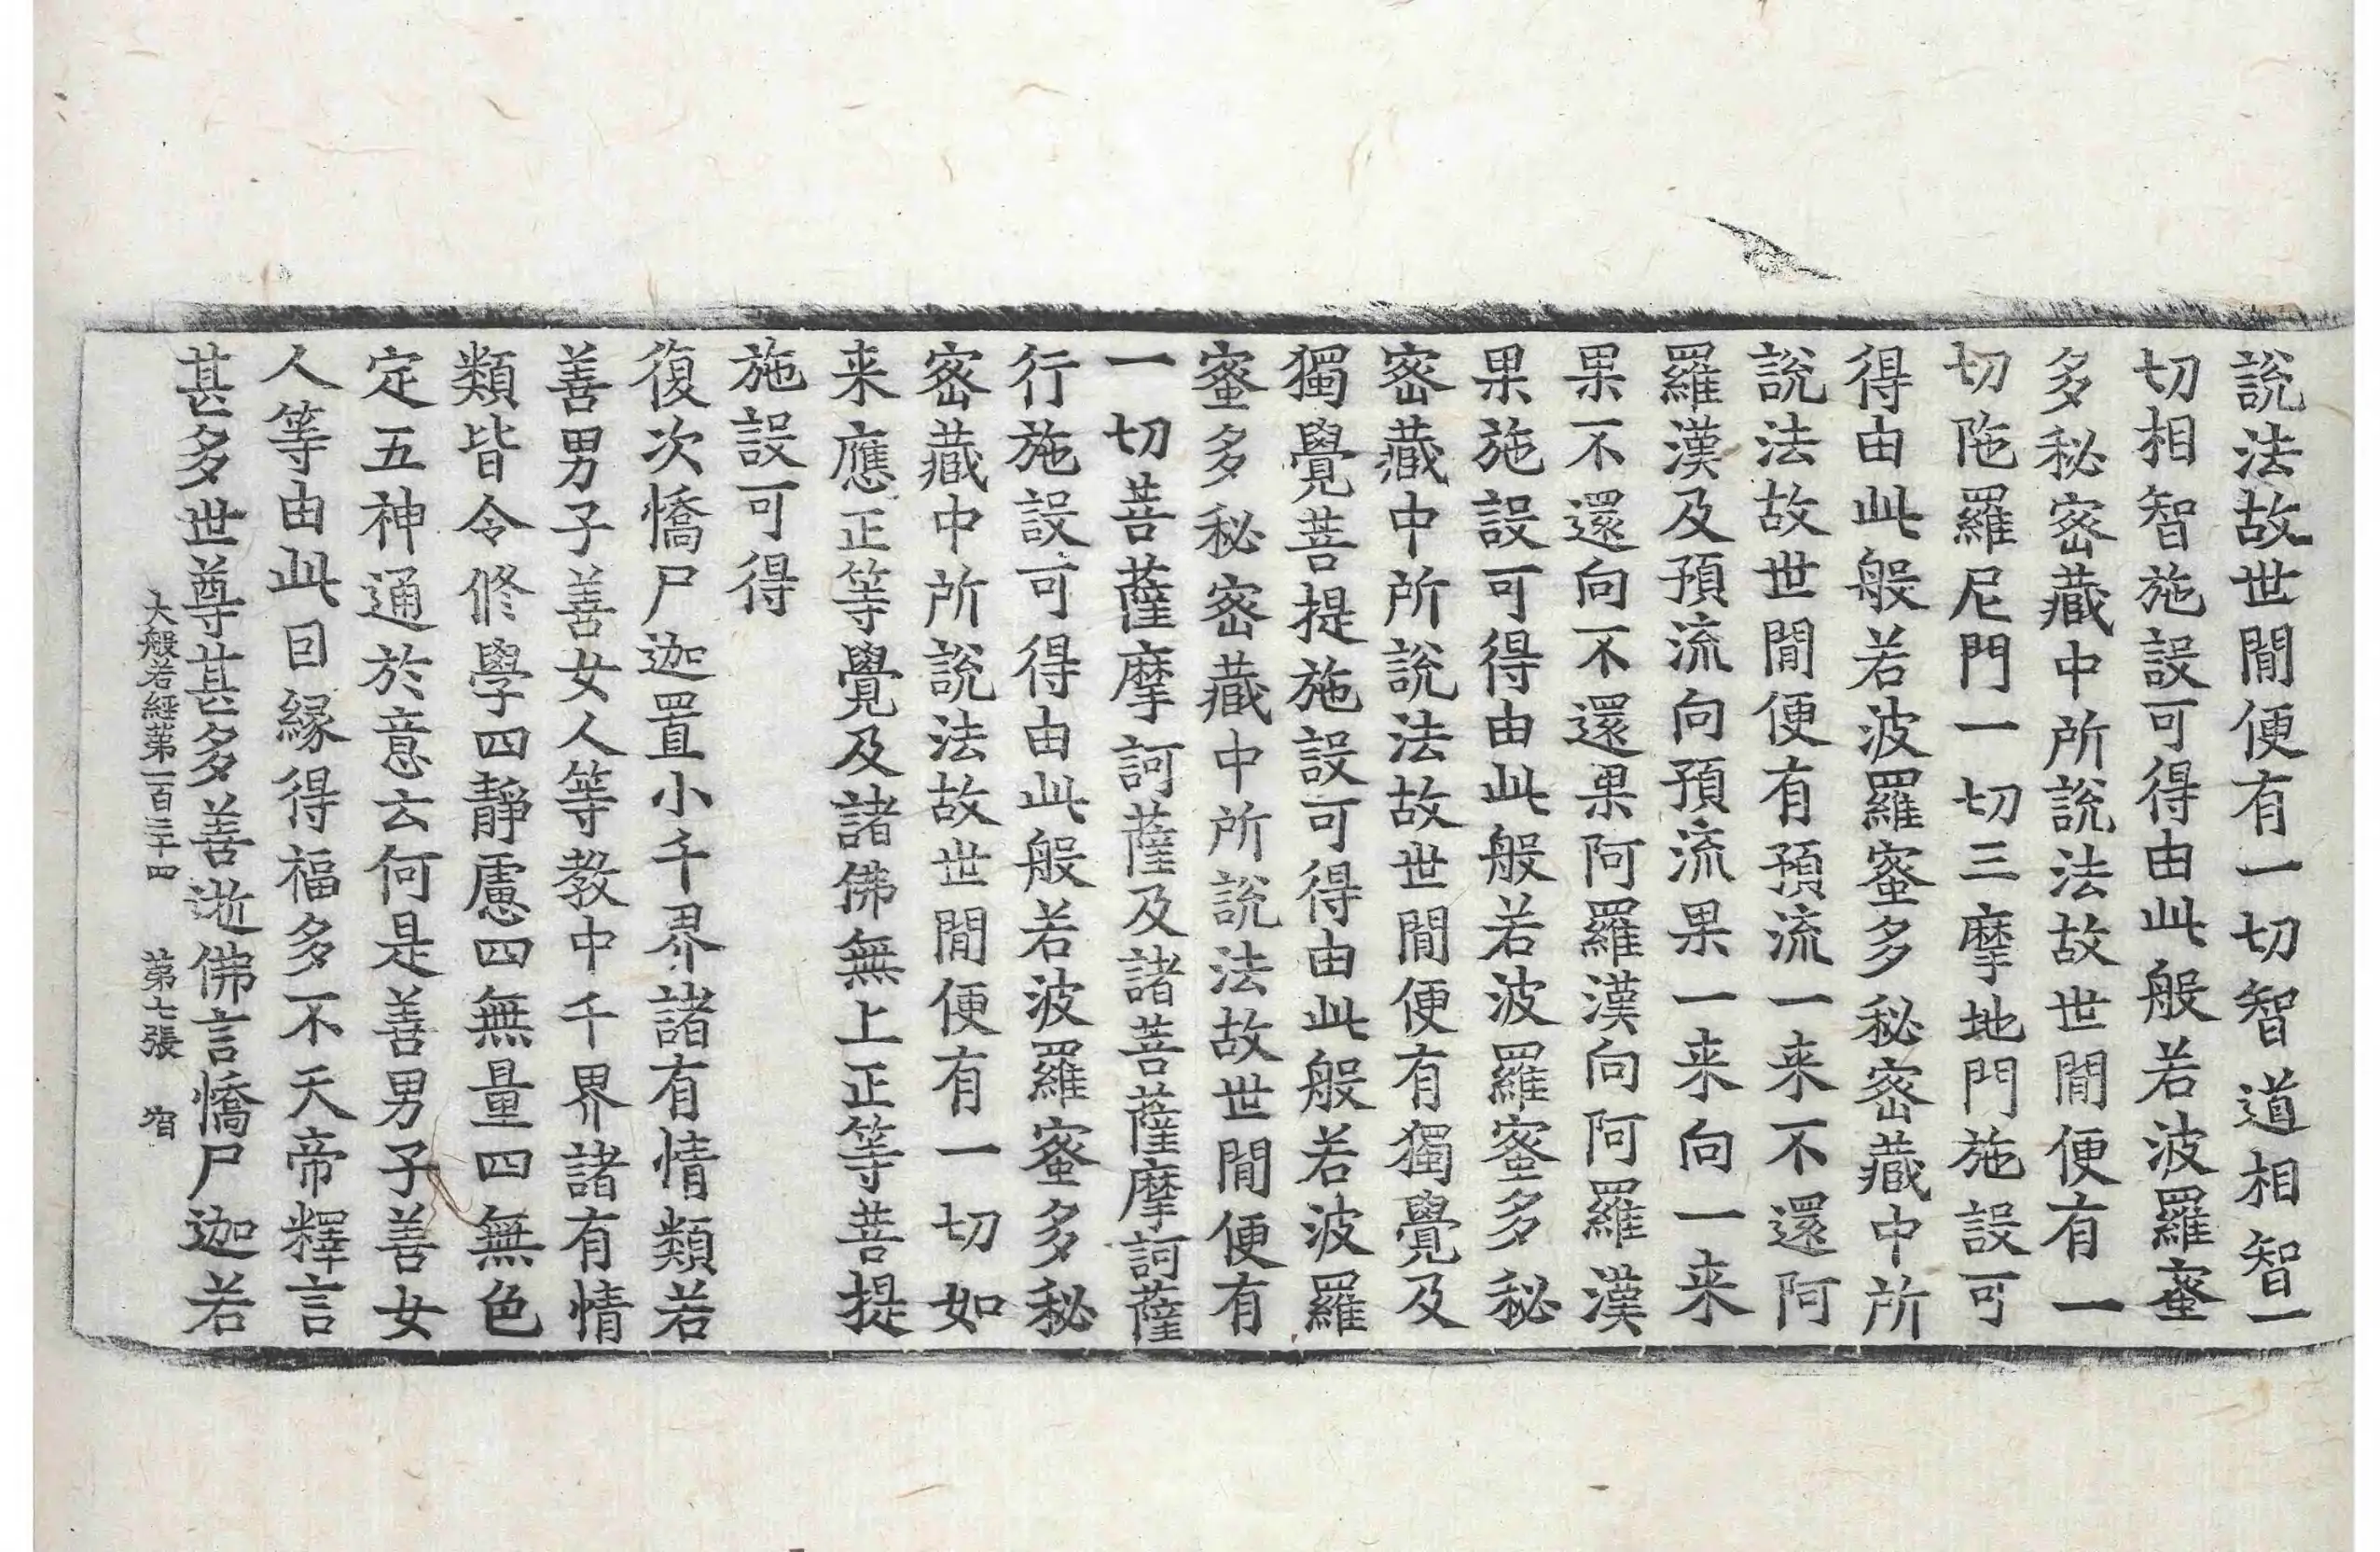 說法故世閒便有一切智道相智一
切相智施設可得由此般若波羅蜜
多秘密藏中所說法故世閒便有一
切陁羅尼門一切三摩地門施設可
得由此般若波羅蜜多秘密藏中所
說法故世閒便有預流一来不還阿
羅漢及預流向預流果一来向一来
果不還向不還果阿羅漢向阿羅漢
果施設可得由此般若波羅蜜多秘
密藏中所說法故世閒便有獨覺及
獨覺菩提施設可得由此般若波羅
蜜多秘密藏中所說法故世閒便有
一切菩薩摩訶薩及諸菩薩摩訶薩
行施設可得由此般若波羅蜜多秘
密藏中所說法故世閒便有一切如
来應正等覺及諸佛無上正等菩提
施設可得
復次憍尸迦置小千界諸有情類若
善男子善女人等教中千界諸有情
類皆令修學四靜慮四無量四無色
定五神通於意云何是善男子善女
人等由此因緣得福多不天帝釋言
甚多世尊甚多善逝佛言憍尸迦若
大般若經第一百三十四 第七張 宿